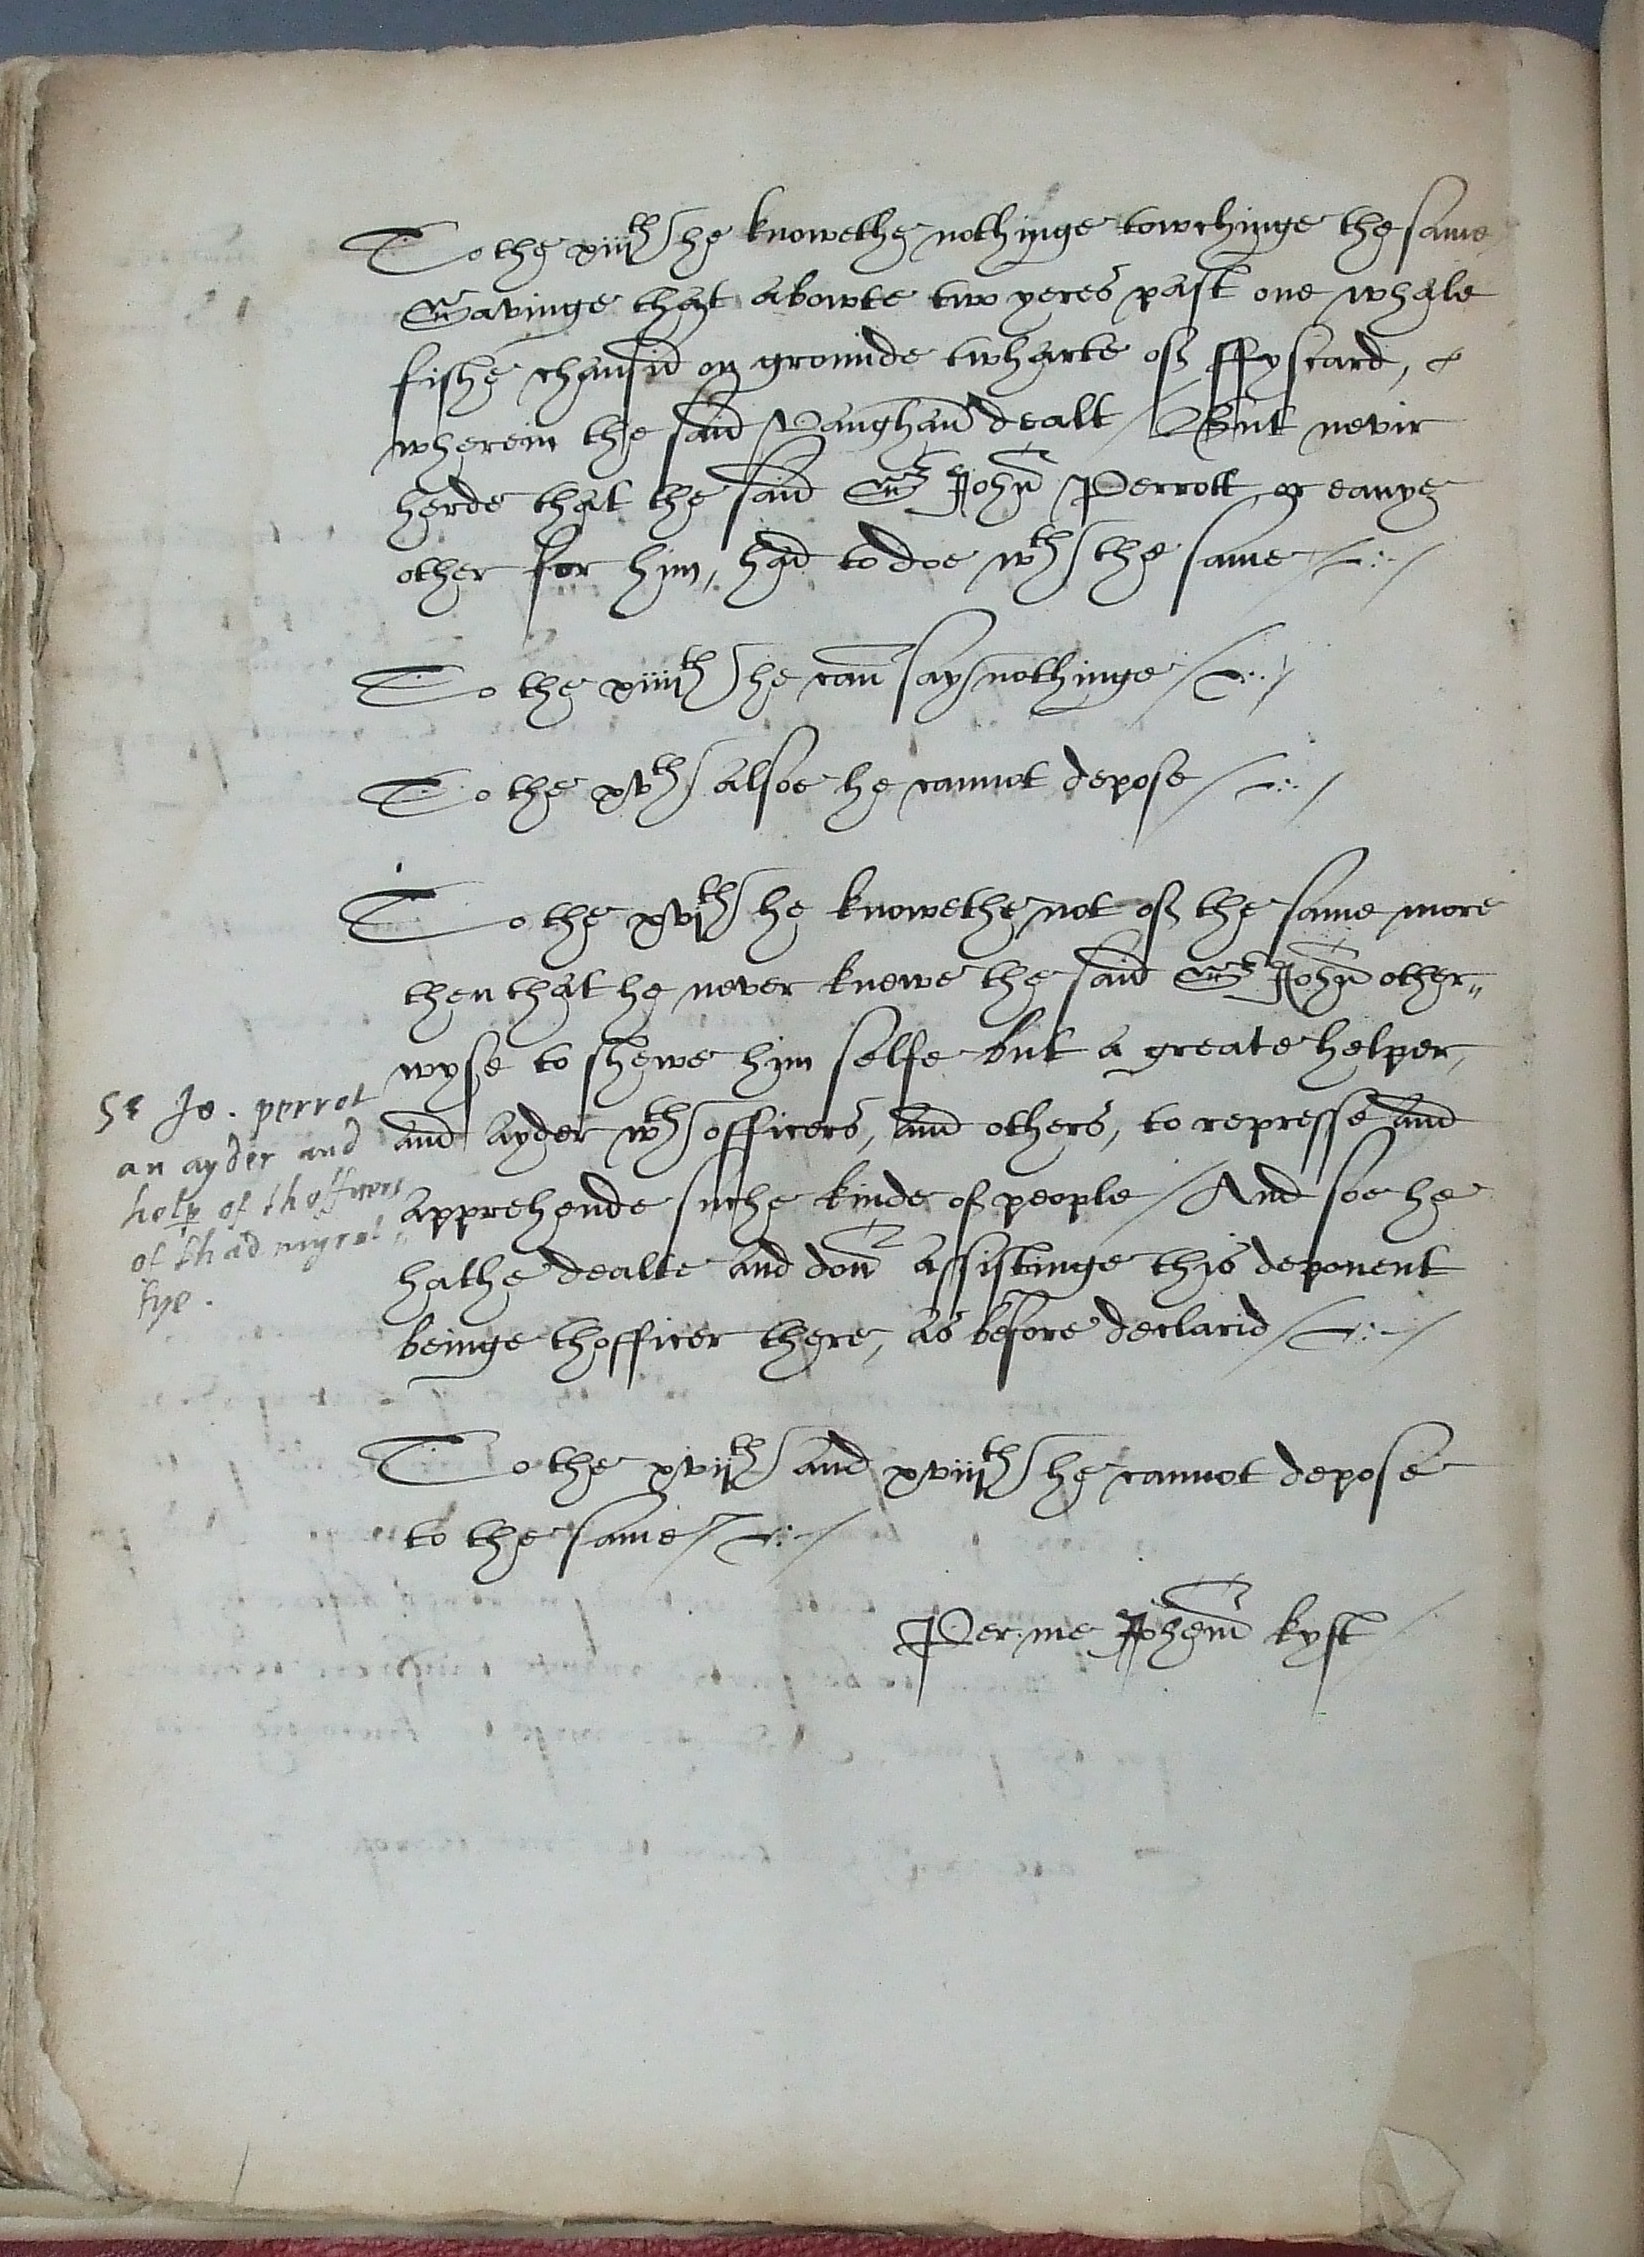 To the xiijth he knowethe nothinge towchinge the same
Savinge that abowte two yeres past one whale
fishe chansid on grounde twharte of ffyscard,
wherein the said Vaughan dealt / But nevir
herde that the said Sr John Perrott or eanye
other for him, had to doe wth the same /
To the xiiijth he can say nothinge /
To the xvth alsoe he cannot depose /
To the xvjth he knowethe not of the same more
then that he never knewe the said Sr John other„
wyse to shewe him selfe but a greate helper,
and ayder wth officers, and others, to represse and
Sr Jo. perrot
an ayder and
help of thofficers
of thadmyral„
tye.
apprehende suche kinde of people / And soe he
hathe dealte and don assistinge this deponent
beinge thofficer there, as before declarid /
To the xvijth and xviijth he cannot depose
to the same /
Per me Johem kyst